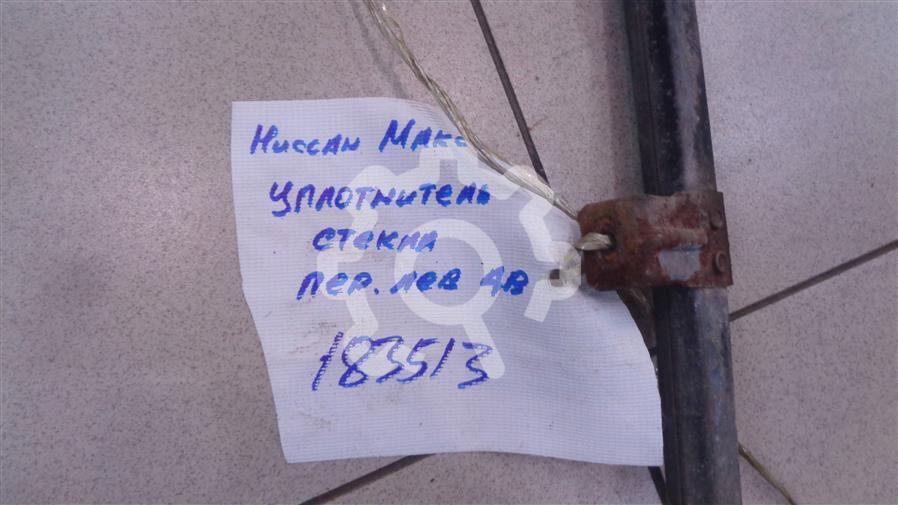 Ниссан Макс
уплотнитель
стекла
пер. лев дв
183513